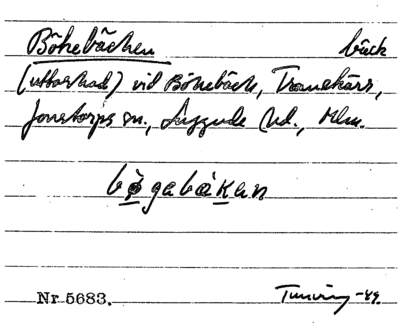 Bökebäcken bäck
(uttorkad) vid Bökebäck, Tranekärr,
Jonstorps sn., Luggude hd., Mlm.
bøgabäkan
Nr 5683. Tuneving -49.